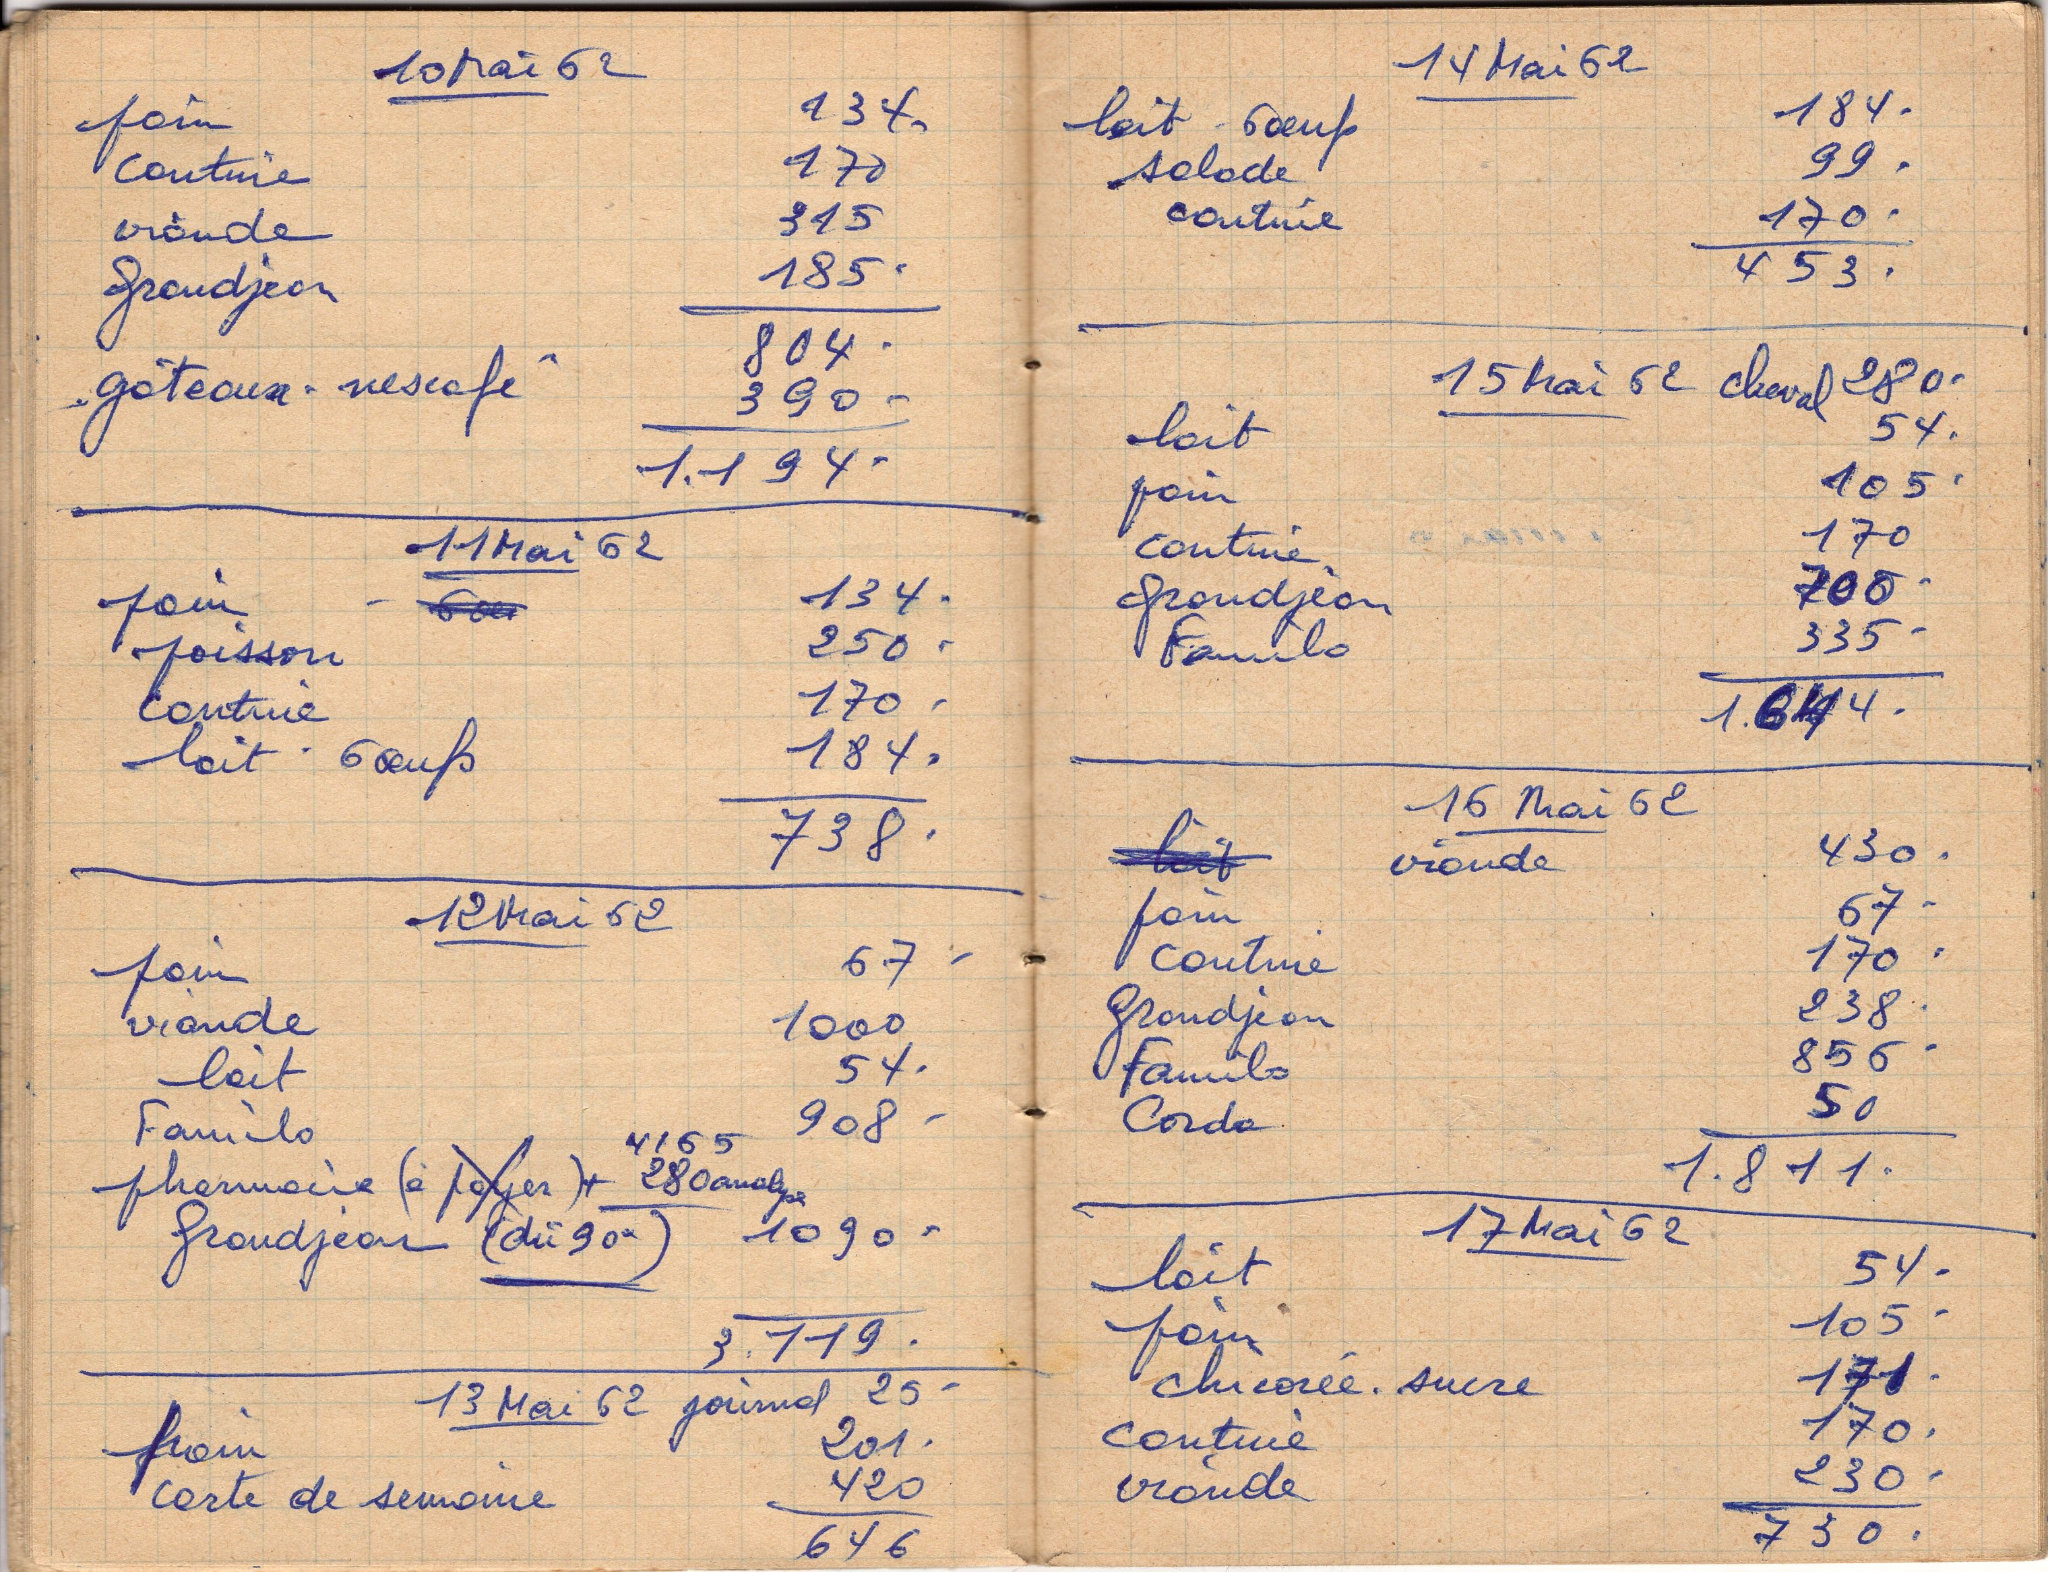 10 Mai 62
pain 134.
cantine 170
viande 315
Grandjean 185.
804.
gâteaux. nescafé 390-
1.194-
11 Mai 62
pain - 134.
poisson 250.
cantine 170.
lait. 6 œufs 184.
738.
12 Mai 62
pain 67-
viande 1000
lait 54.
Familo 908-
4165
pharmacie (à payer) + 280 analyse
Grandjean (dû 90-) 1090-
3.119.
13 Mai 62 journal 25-
pain 201.
carte de semaine 420
646
14 Mai 62
lait - 6 œufs 184.
salade 99.
cantine 170.
453.
15 Mai 62 cheval 280-
lait 54.
pain 105.
cantine 170
Grandjean 700-
Familo 335-
1.644.
16 Mai 62
lait viande 430.
pain 67-
cantine 170.
Grandjean 238.
Familo 856-
Corda 50
1.811.
17 Mai 62
lait 54.
pain 105-
chicorée. sucre 171.
cantine 170.
viande 230-
730.